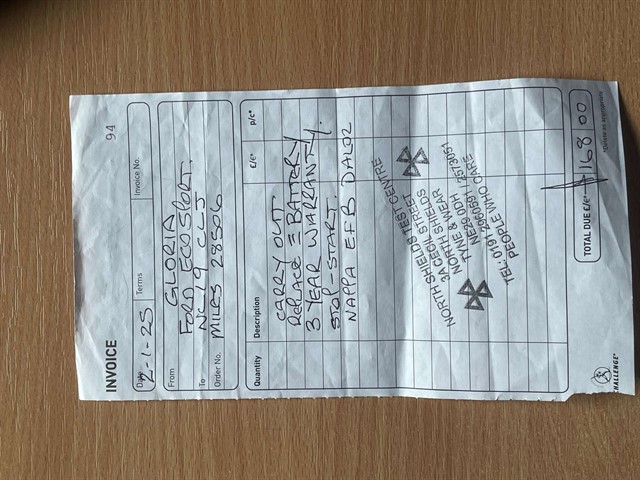 INVOICE 94
Date 2-1-25 Terms Invoice No.
From GLORIA
FORD ECOSPORT.
To NC19 CLJ
Order No. MILES 28506
Quantity Description £/€* p/c*
CARRY OUT
REPLACE = BATTERY
3 YEAR WARRANTY.
STOP-START.
NAPPA EFB DAL02
NORTH SHIELDS TEST CENTRE
3A CECIL STREET
NORTH SHIELDS
TYNE & WEAR
NE29 0DH
TEL: 0191 2960691 / 2573051
PEOPLE WHO CARE
TOTAL DUE £/€* 168 00
*Delete as appropriate
CHALLENGE